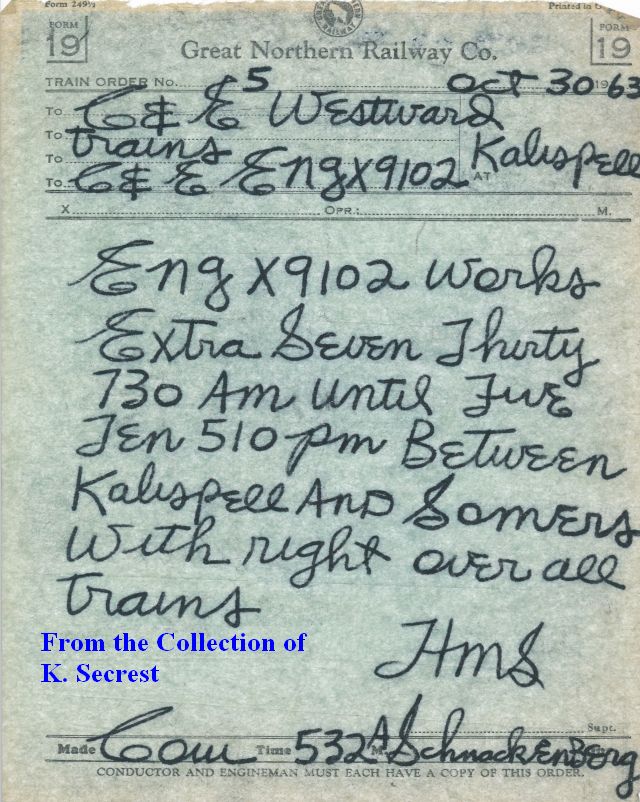 Form 249½ Printed in U
FORM 19 Great Northern Railway Co. FORM 19
TRAIN ORDER No. 5 Oct 30 1963
To C&E Westward
To trains
To Kalispell
To C&E Eng X9102 AT
X. OPR.: M.
Eng X9102 Works
Extra Seven Thirty
730 Am Until Five
Ten 510 pm Between
Kalispell And Somers
With right over all
trains
From the Collection of
K. Secrest
HMS
Supt.
Made Com Time 532A M. Schnackenberg
CONDUCTOR AND ENGINEMAN MUST EACH HAVE A COPY OF THIS ORDER.